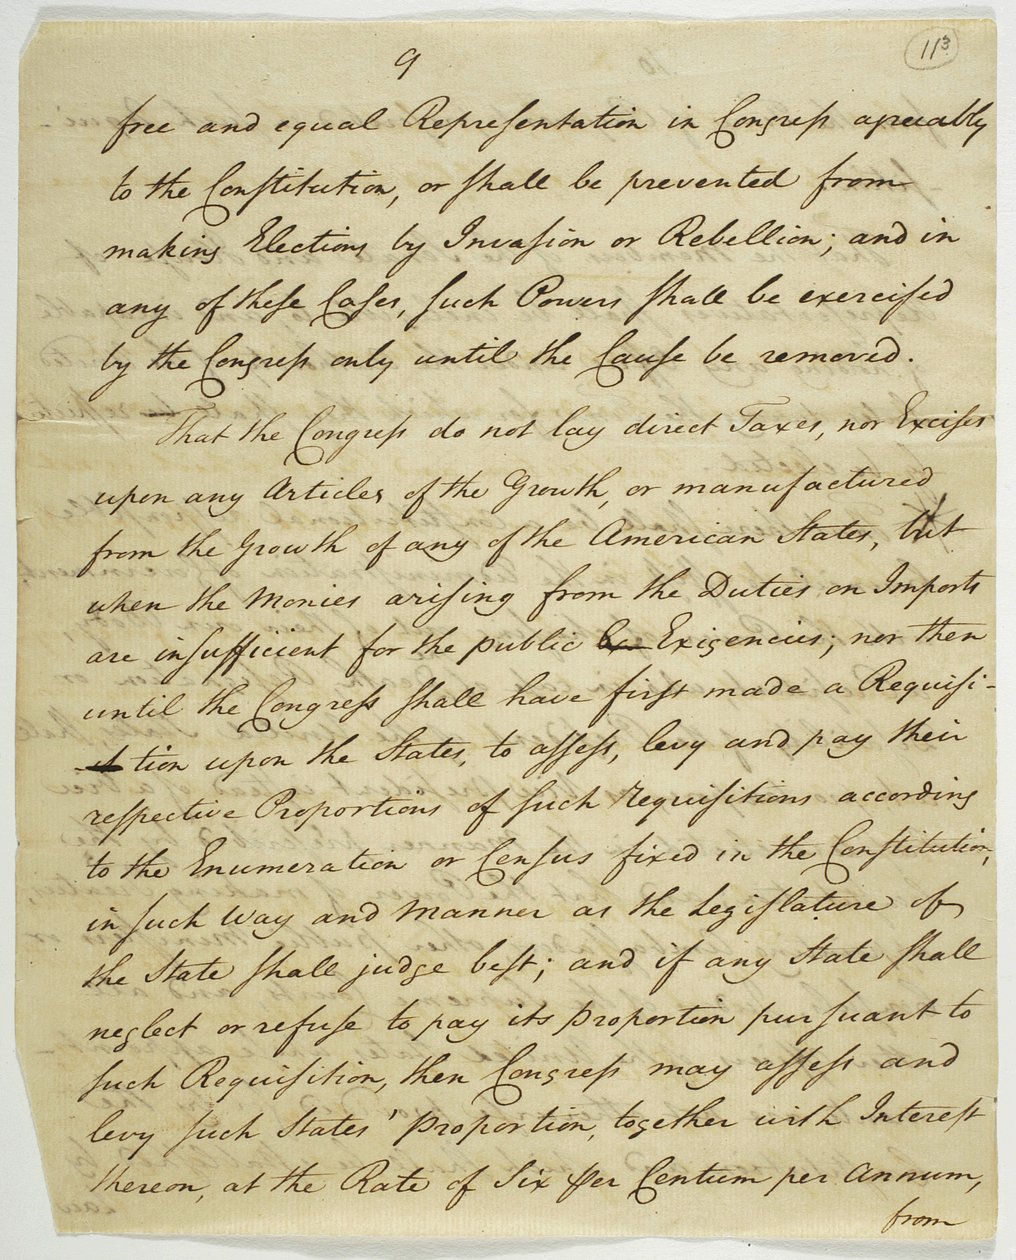 113
9
free and equal Representation in Congress agreeably
to the Constitution, or shall be prevented from
making Elections by Invasion or Rebellion; and in
any of these Cases, such Powers shall be exercised
by the Congress only until the Cause be removed.
That the Congress do not lay direct Taxes, nor Excises
upon any Articles of the Growth, or manufactured
from the Growth of any of the American States, but
when the Monies arising from the Duties on Imports
are insufficient for the public Exigencies; nor then
until the Congress shall have first made a Requisi-
tion upon the States, to assess, levy and pay their
respective Proportions of such Requisitions according
to the Enumeration or Census fixed in the Constitution,
in such Way and Manner as the Legislature of
the State shall judge best; and if any State shall
neglect or refuse to pay its Proportion pursuant to
such Requisition, then Congress may assess and
levy such States' Proportion, together with Interest
thereon, at the Rate of Six per Centum per Annum,
from